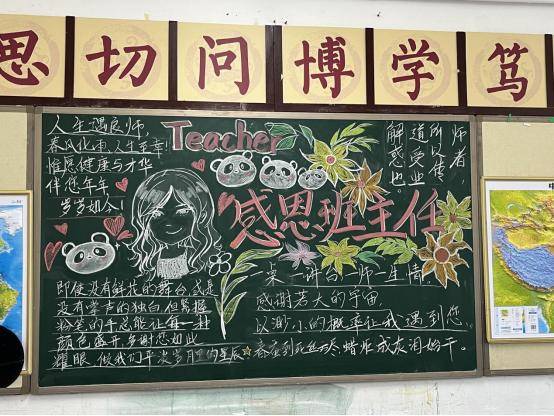 思切问博学笃
人生遇良师,
春风化雨,人生至幸
惟愿健康与才华
伴您年年
岁岁如今!
Teacher
解道所师
惑受以者
也业传
感恩班主任
即使没有鲜花的舞台,或是
没有掌声的独白,但紧握
粉笔的手总能让每一种
颜色盛开,多谢您如此
耀眼,做我们平淡岁月里的星辰
一桌一讲台一师一生情,
感谢若大的宇宙,
以渺小的概率让我遇到您,
春蚕到死丝方尽,蜡炬成灰泪始干。